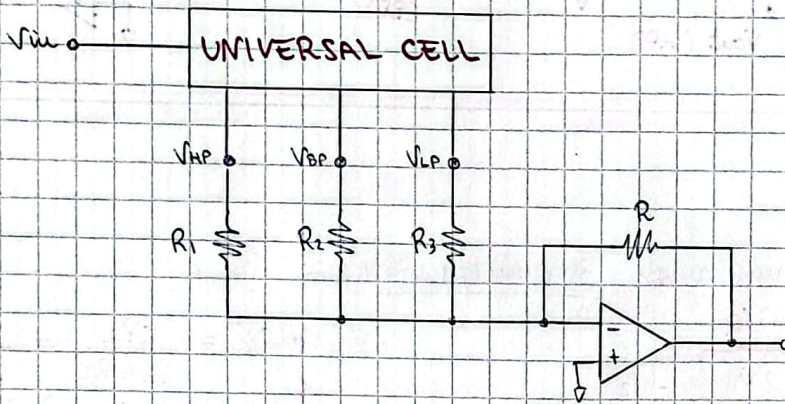 Vin
UNIVERSAL CELL
VHP VBP VLP
R1 R2 R3
R
-
+